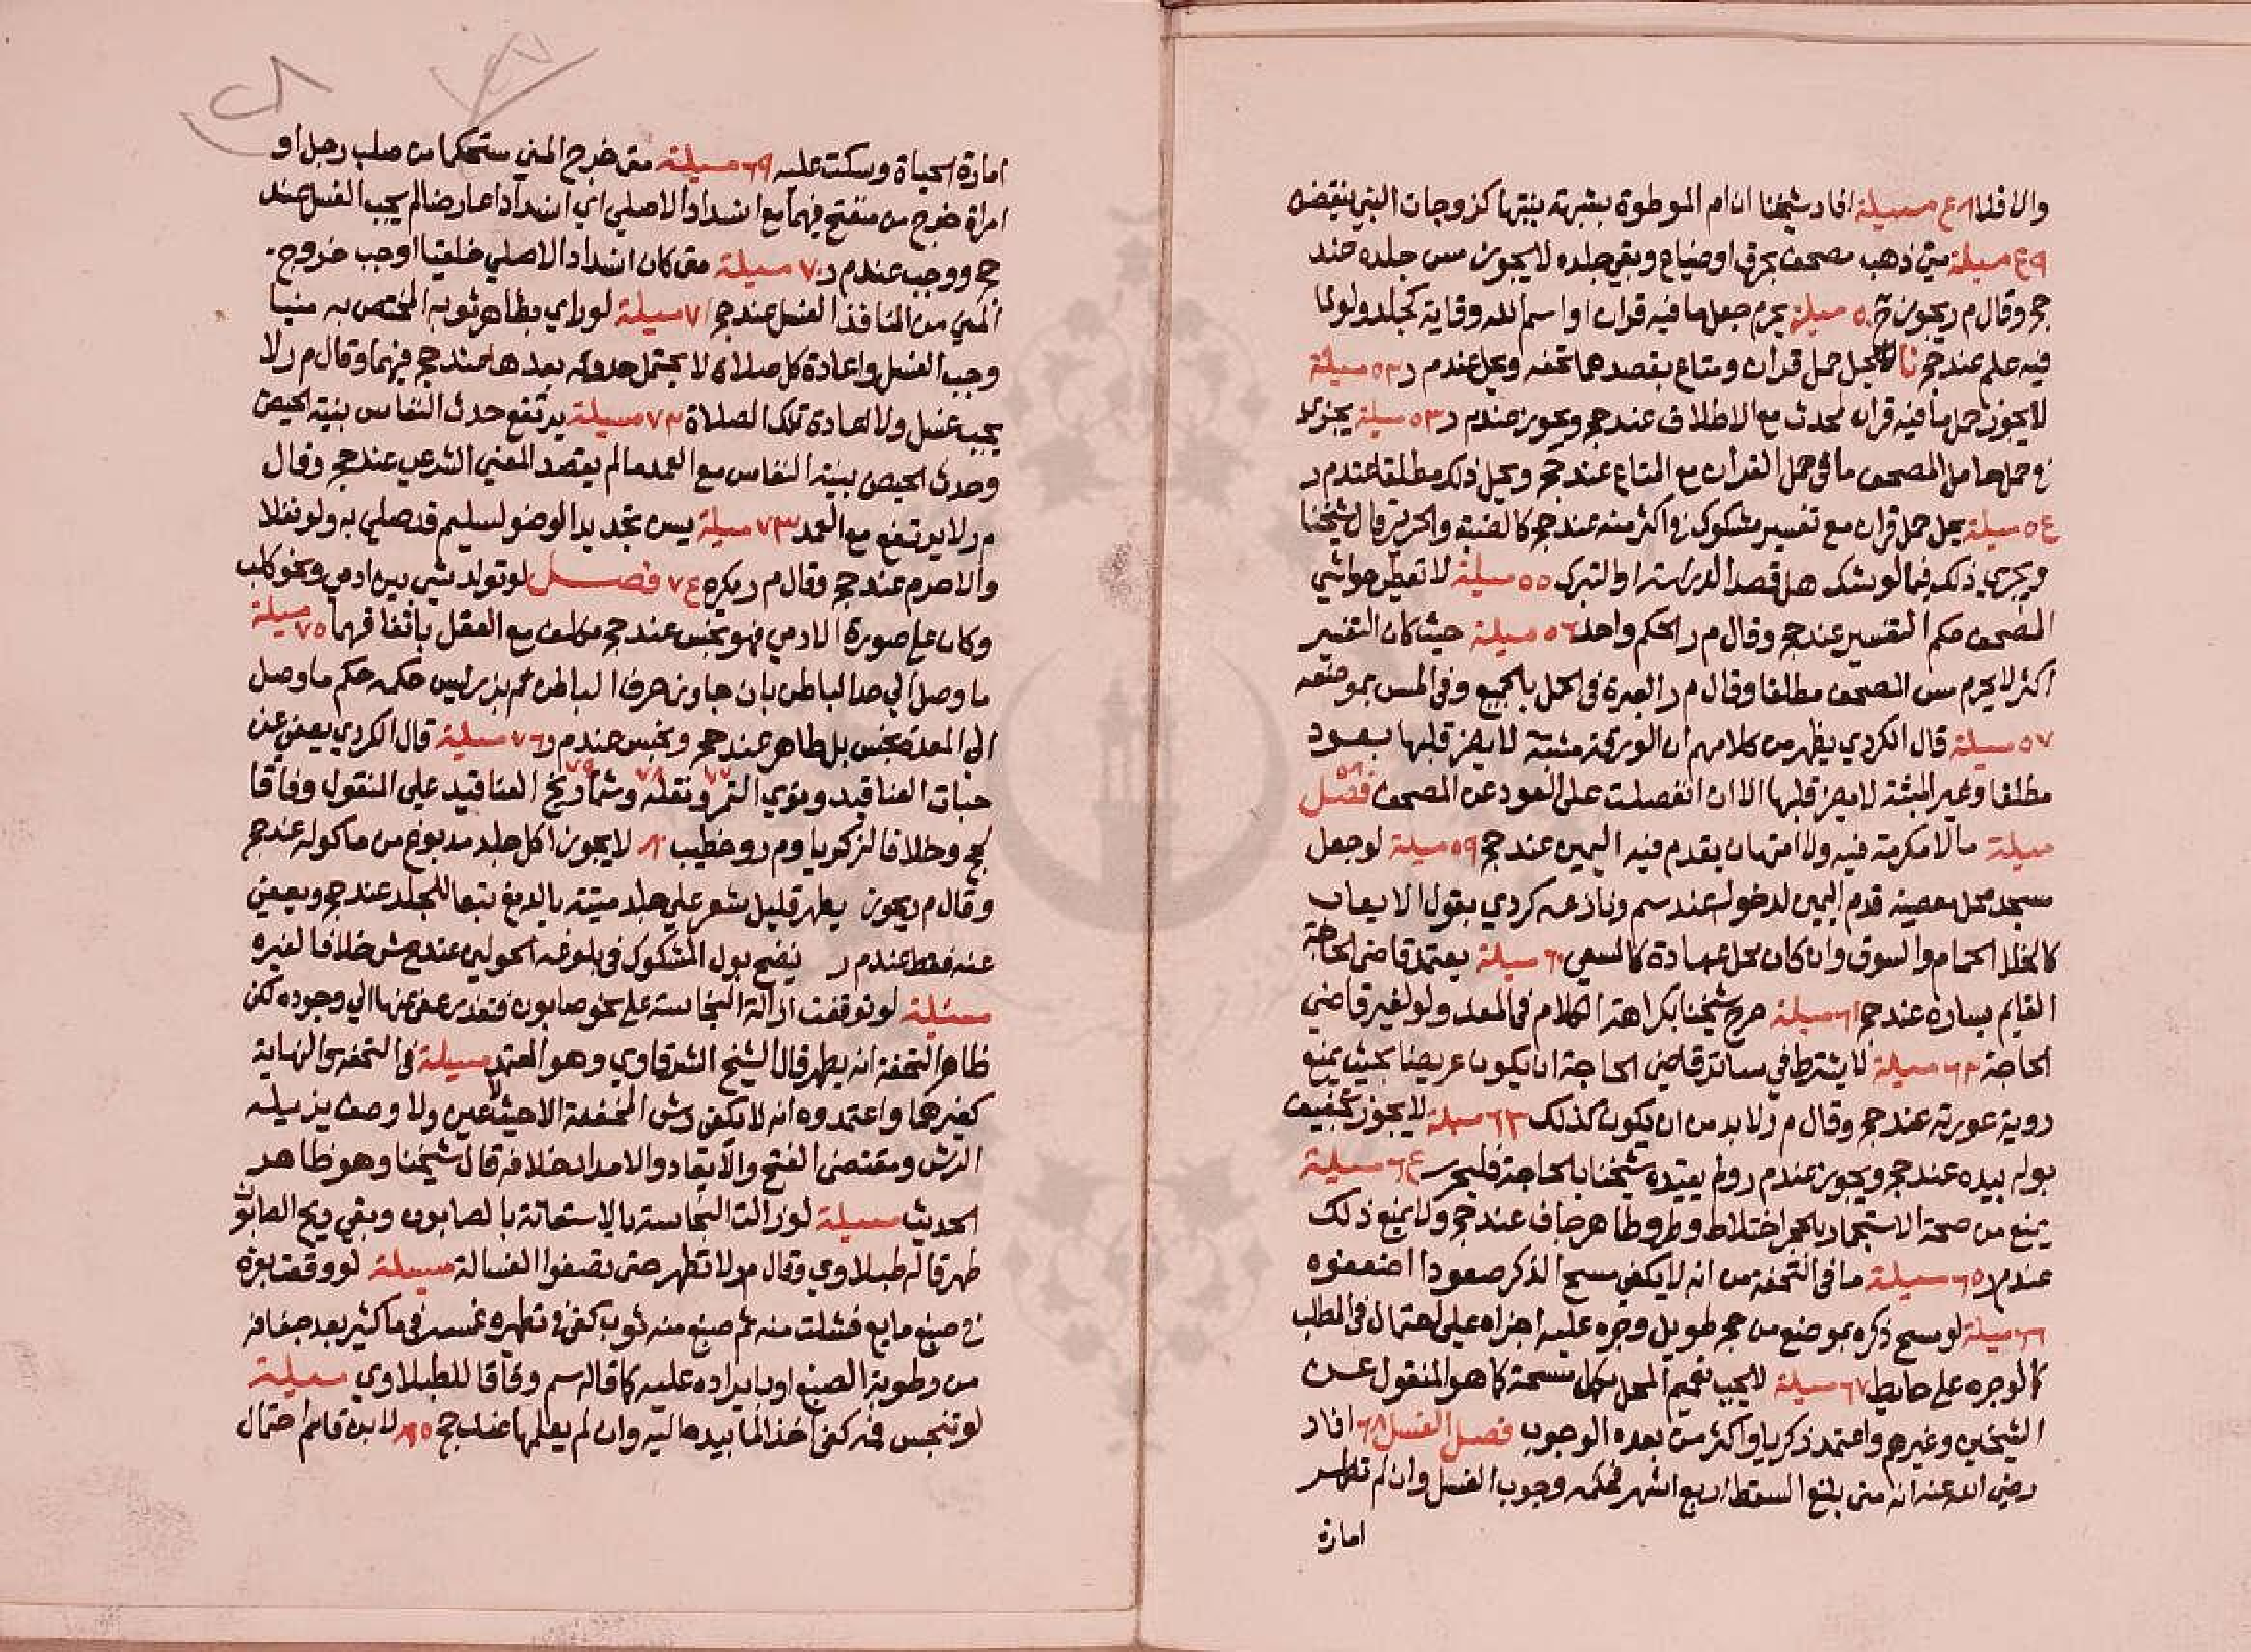 والا فلا ٤٨ مسيلة افاد شيخنا ان ام الموطوة بشبهة بنتها كزوجات البني ينقضن
٤٩ مسيلة متى ذهب مصحف بحرق او ضياع وبقي جلده لا يجوز مس جلده عند
حج وقال م ر يجوز ٥٠ مسيلة يحرم جعل ما فيه قران او اسم الله وقاية كجلد ولو لما
فيه علم عند حج لا يحل حمل قران ومتاع بقصدهما تحفه ويحل عند م ر ٥٢ مسيلة
لا يجوز حمل ما فيه قران لمحدث مع الاطلاق عند حج ويجوز عند م ر ٥٣ مسيلة يجري
في حمل حامل المصحف ما في حمل القران مع المتاع عند حج ويحل ذلك مطلقا عند م ر
٥٤ مسيلة يحل حمل قران مع تفسير مشكوك في اكثر منه عند حج كالضبة والحرير قال شيخنا
ويجري ذلك فيما لو شك هل قصد الدراسة او التبرك ٥٥ مسيلة لا تعطى حواشي
المصحف حكم التفسير عند حج وقال م ر الحكم واحد ٥٦ مسيلة حيث كان التفسير
اكثر لا يحرم مس المصحف مطلقا وقال م ر العبرة في الحمل بالجميع وفي المس بموضعه
٥٧ مسيلة قال الكردي يظهر من كلامهم ان الورقة مثبتة لا يضر قلبها بعود
مطلقا وغير المثبتة لا يضر قلبها الا ان انفصلت على العود عن المصحف ٥٨ فصل
مسيلة ما لا مكرمة فيه ولا امتهان يقدم فيه اليمين عند حج ٥٩ مسيلة لو جعل
مسجد محل معصية قدم اليمين لدخوله عند سم ونازعه كردي بقول الايعاب
كالخلا الحمام والسوق وان كان محل عبادة كالمسعي ٦٠ مسيلة يعتمد قاضي الحاجة
القايم يساره عند حج ٦١ مسيلة صرح شيخنا بكراهة الكلام في المعد ولو لغير قاضي
الحاجة ٦٢ مسيلة لا يشترط في ساتر قاضي الحاجة ان يكون عريضا بحيث يمنع
روية عورته عند حج وقال م ر لا بد من ان يكون كذلك ٦٣ مسيلة لا يجوز تجفيف
بوله بيده عند حج ويجوز عند م ر ولم يقيده شيخنا بالحاجة فليحرر ٦٤ مسيلة
يمنع من صحة الاستجمار بالحجر اختلاط وطرو طاهر جاف عند حج ولا يمنع ذلك
عند م ر ٦٥ مسيلة ما في التحفة من انه لا يكفي مسح الذكر صعودا اضعفوه
٦٦ مسيلة لو مسح ذكره بموضع من حجر طويل وجره عليه اجزاه على احتمال في المطلب
كالو جره على حايط ٦٧ مسيلة لا يجب تعميم المحل بكل مسحة كما هو المنقول عن
الشيخين وغيرهم واعتمد زكريا واكثر من بعده الوجوب فصل الغسل ٦٨ افاد
رضي الله عنه انه متى بلغ السقط اربع اشهر فحكمه وجوب الغسل وان لم تظهر
امارة
امارة الحياة وسكت عليه ٦٩ مسيلة متى خرج المني مستحكما من صلب رجل او
امراة خرج من منفتح فيهما مع انسداد الاصلي اي انسدادا عارضا لم يجب الغسل عند
حج ووجب عند م ر ٧٠ مسيلة متى كان انسداد الاصلي خلقيا اوجب خروج
المني من المنافذ الغسل عند حج ٧١ مسيلة لو راي بظاهر ثوبه المختص به منيا
وجب الغسل واعادة كل صلاة لا يحتمل حدوثه بعدها عند حج فيهما وقال م ر لا
يجب غسل ولا اعادة تلك الصلاة ٧٢ مسيلة يرتفع حدث النفاس بنية الحيض
وحدث الحيض بنية النفاس مع العمد ما لم يقصد المعني الشرعي عند حج وقال
م ر لا يرتفع مع العمد ٧٣ مسيلة يسن تجديد الوضو لسليم قد صلي به ولو نفلا
والا حرم عند حج وقال م ر يكره ٧٤ فصل لو تولد شي بين ادمي ونحو كلب
وكان على صورة الادمي فهو نجس عند حج مكلف مع العقل باتفاقهما ٧٥ مسيلة
ما وصل الي حد الباطن بان جاوز حرف الباطن ثم بزر ليس حكمه حكم ما وصل
الي المعدة نجس بل طاهر عند حج ونجس عند م ر ٧٦ مسيلة قال الكردي يعفي عن
حبات العناقيد ونوي التمر ونقله وشماريخ العناقيد علي المنقول وفاقا
لحج وخلافا لزكريا وم ر وخطيب ٨٠ لا يجوز اكل جلد مدبوغ من ماكول عند حج
وقال م ر يجوز يطهر قليل شعر علي جلد ميتة بالدبغ تبعا للجلد عند حج ويعفي
عنه فقط عند م ر ينضح بول المشكوك في بلوغه الحولين عند ع ش خلافا لغيره
مسئلة لو توقفت ازالة النجاسة على نحو صابون فتعذر عفي عنها الي وجوده لكن
ظاهر التحفة انه يطهر قال الشيخ الشرقاوي وهو المعتمد مسيلة في التحفة والنهاية
كغيرهما واعتمدوه انه لا يكفي رش المخففة الا حيث لا عين ولا وصف يزيله
الرش ومقتضي الفتح والايقاد والامداد خلافه قال شيخنا وهو ظاهر
الحديث مسيلة لو زالت النجاسة بالاستعانة بالصابون وبقي ريح الصابون
طهر قاله طبلاوي وقال م ر لا تطهر حتى تصفوا الغسالة مسيلة لو وقعت بعرة
في صبغ مايع فشلت منه ثم صبغ منه ثوب كفي في تطهيره غمسه في ما كثير بعد جفافه
من رطوبة الصبغ او بايراده عليه كما قاله سم وفاقا للطبلاوي مسيلة
لو تنجس فمه كفي اخذ الما بيده اليه وان لم يعلها عند حج ٨٥ لابن قاسم احتمال